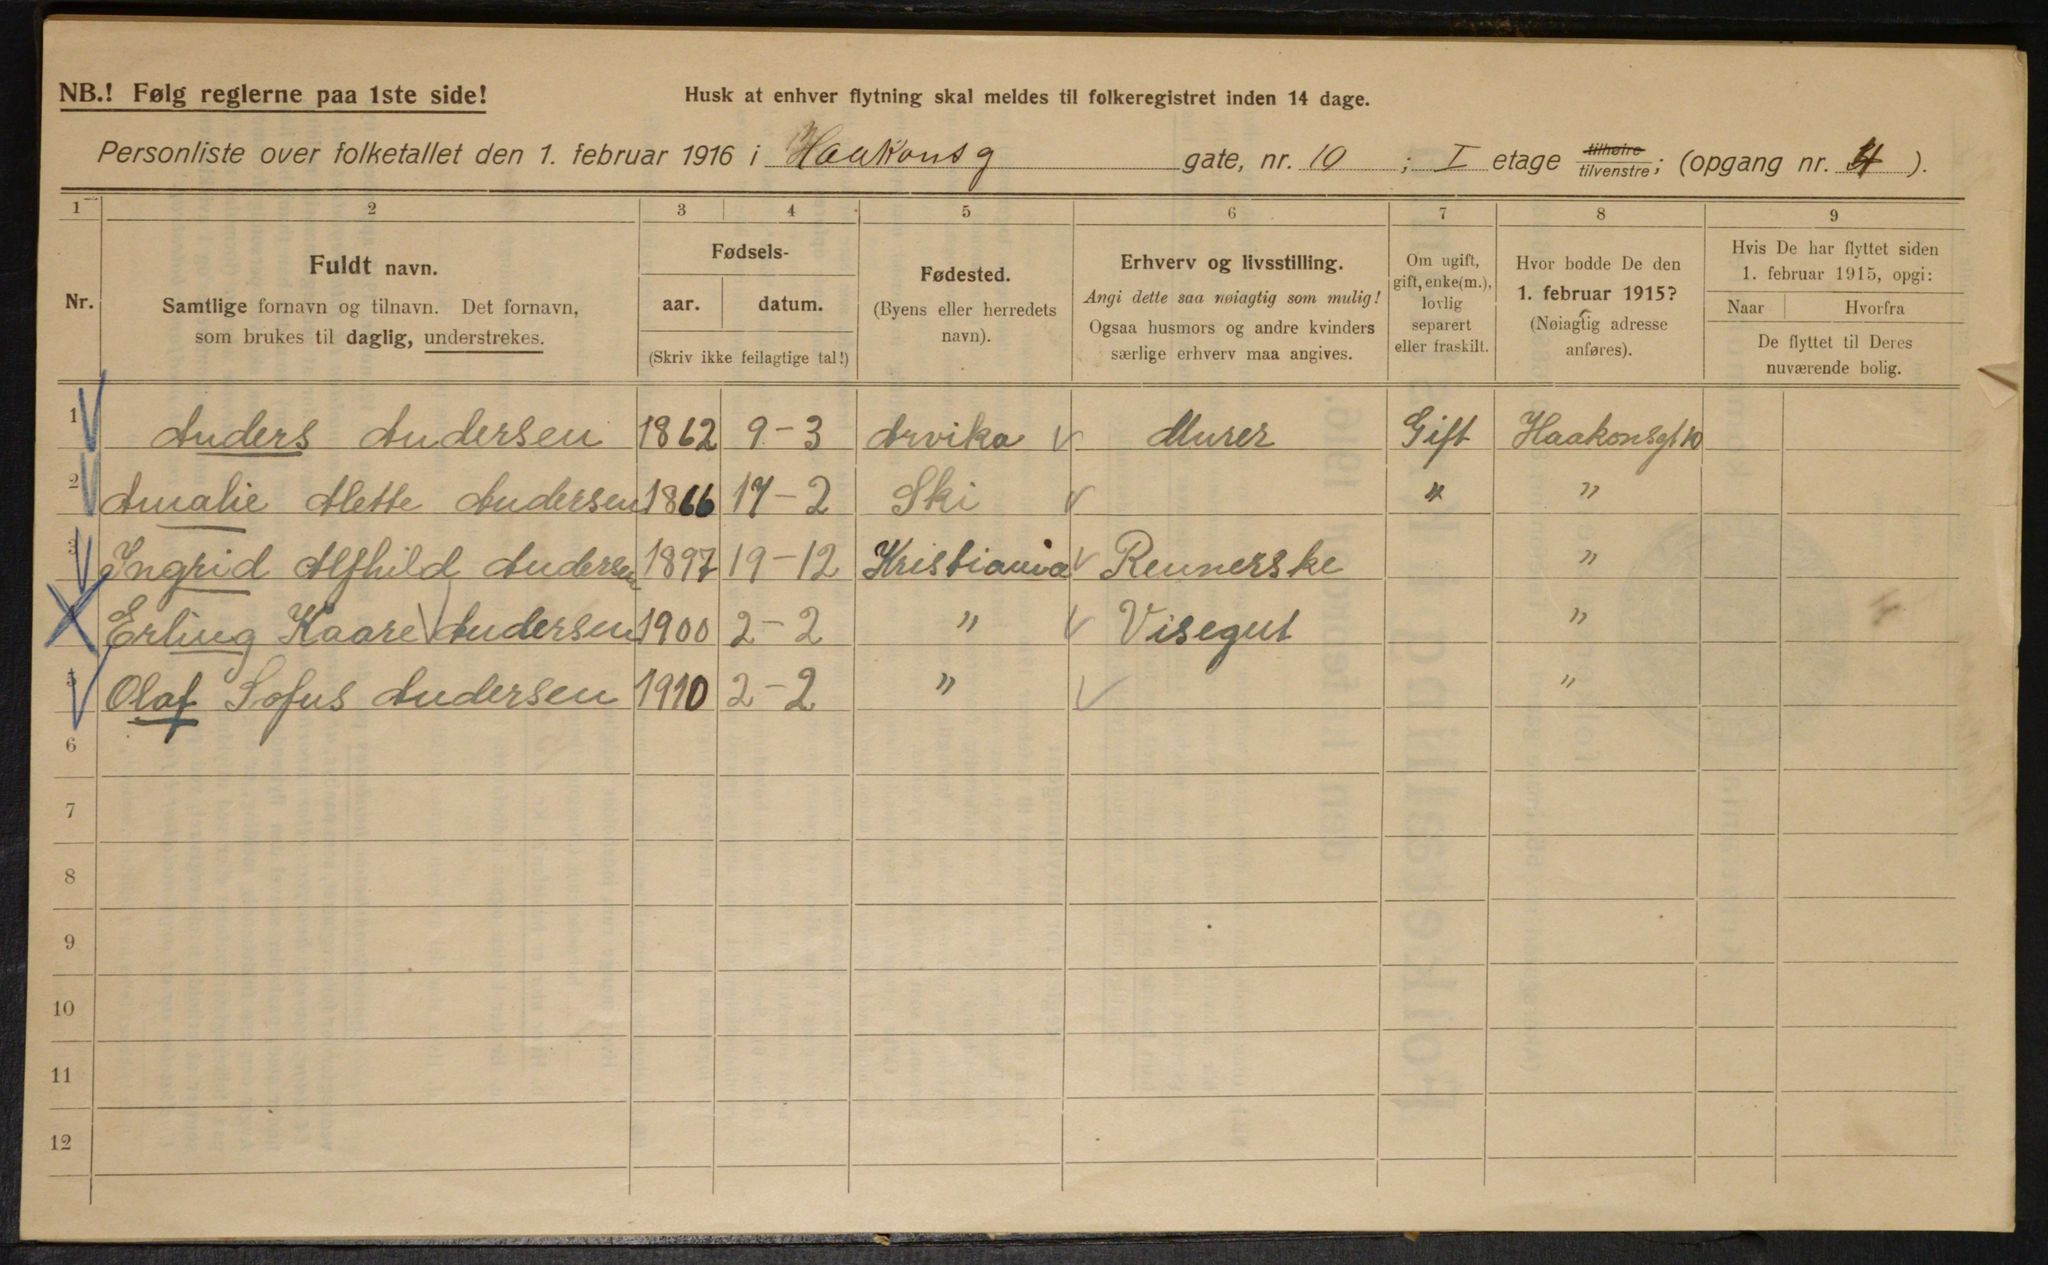 NB.! Følg reglerne paa 1ste side!
Husk at enhver flytning skal meldes til folkeregistret inden 14 dage.
Personliste over folketallet den 1. februar 1916 i Haakonsg gate, nr. 10 ; I etage tilhøire/tilvenstre; (opgang nr. 4 ).
1 2 3 4 5 6 7 8 9
Nr.
Fuldt navn.
Samtlige fornavn og tilnavn. Det fornavn,
som brukes til daglig, understrekes.
Fødsels-
aar. datum.
(Skriv ikke feilagtige tal!)
Fødested.
(Byens eller herredets
navn).
Erhverv og livsstilling.
Angi dette saa nøiagtig som mulig!
Ogsaa husmors og andre kvinders
særlige erhverv maa angives.
Om ugift,
gift, enke(m.),
lovlig
separert
eller fraskilt.
Hvor bodde De den
1. februar 1915?
(Nøiagtig adresse
anføres).
Hvis De har flyttet siden
1. februar 1915, opgi:
Naar Hvorfra
De flyttet til Deres
nuværende bolig.
1 Anders Andersen 1862 9-3 Arvika Murer Gift Haakonsgt 10
2 Amalie Alette Andersen 1866 17-2 Ski " "
3 Ingrid Alfhild Andersen 1897 19-12 Kristiania Rennerske "
Erling Kaare Andersen 1900 2-2 " Visegut "
5 Olaf Sofus Andersen 1910 2-2 " "
6
7
8
9
10
11
12